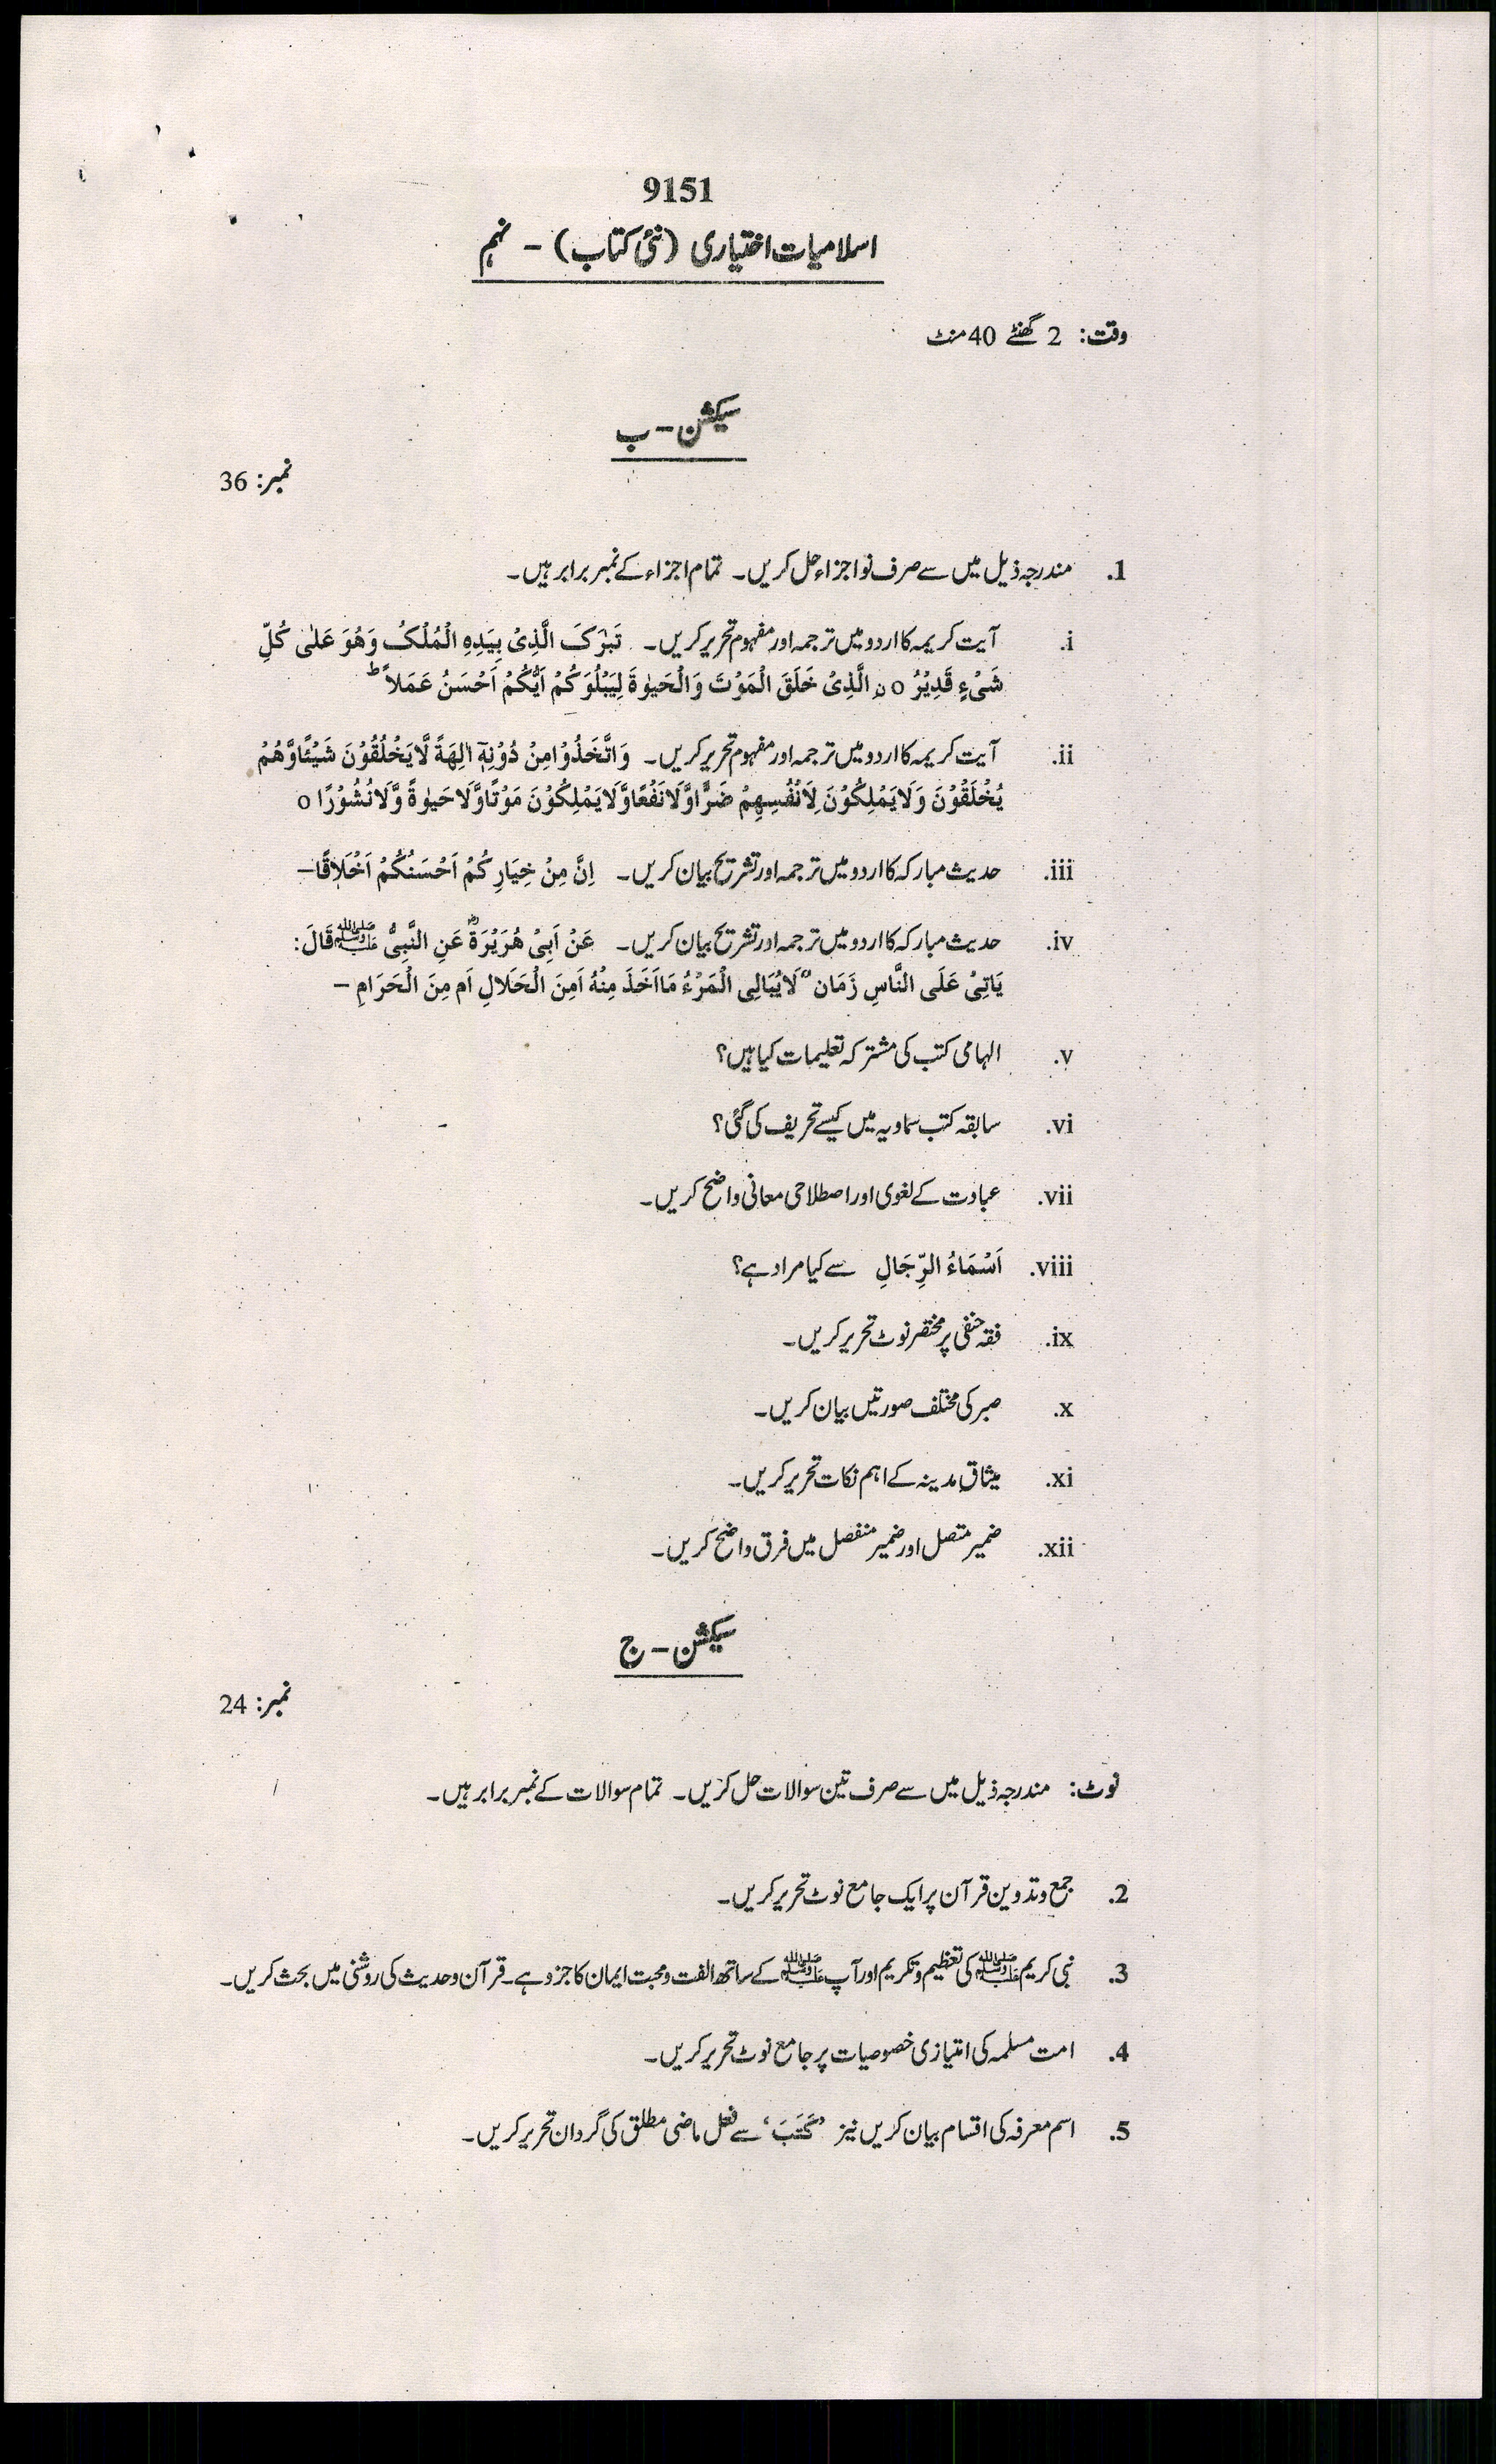 9151
اسلامیات اختیاری (نئی کتاب) - نہم
وقت: 2 گھنٹے 40 منٹ
سیکشن - ب
نمبر: 36
1. مندرجہ ذیل میں سے صرف نو اجزاء حل کریں۔ تمام اجزاء کے نمبر برابر ہیں۔
i. آیت کریمہ کا اردو میں ترجمہ اور مفہوم تحریر کریں۔ تَبٰرَکَ الَّذِیْ بِیَدِہِ الْمُلْکُ وَھُوَ عَلٰی کُلِّ
شَیْءٍ قَدِیْرُ o نِ الَّذِیْ خَلَقَ الْمَوْتَ وَالْحَیٰوۃَ لِیَبْلُوَکُمْ اَیُّکُمْ اَحْسَنُ عَمَلاً ط
ii. آیت کریمہ کا اردو میں ترجمہ اور مفہوم تحریر کریں۔ وَاتَّخَذُوْا مِنْ دُوْنِہٖٓ اٰلِھَۃً لَّا یَخْلُقُوْنَ شَیْئًا وَّھُمْ
یُخْلَقُوْنَ وَلَا یَمْلِکُوْنَ لِاَنْفُسِھِمْ ضَرًّا وَّلَا نَفْعًا وَّلَا یَمْلِکُوْنَ مَوْتًا وَّلَا حَیٰوۃً وَّلَا نُشُوْرًا o
iii. حدیث مبارکہ کا اردو میں ترجمہ اور تشریح بیان کریں۔ اِنَّ مِنْ خِیَارِکُمْ اَحْسَنُکُمْ اَخْلَاقًا—
iv. حدیث مبارکہ کا اردو میں ترجمہ اور تشریح بیان کریں۔ عَنْ اَبِیْ ھُرَیْرَۃَؓ عَنِ النَّبِیُّ ﷺ قَالَ:
یَاتِیْ عَلَی النَّاسِ زَمَان ٌ لَایُبَالِی الْمَرْءُ مَااَخَذَ مِنْہُ اَمِنَ الْحَلَالِ اَم مِنَ الْحَرَامِ —
v. الہامی کتب کی مشترکہ تعلیمات کیا ہیں؟
vi. سابقہ کتب سماویہ میں کیسے تحریف کی گئی؟
vii. عبادت کے لغوی اور اصطلاحی معانی واضح کریں۔
viii. اَسْمَاءُ الرِّجَالِ سے کیا مراد ہے؟
ix. فقہ حنفی پر مختصر نوٹ تحریر کریں۔
x. صبر کی مختلف صورتیں بیان کریں۔
xi. میثاقِ مدینہ کے اہم نکات تحریر کریں۔
xii. ضمیر متصل اور ضمیر منفصل میں فرق واضح کریں۔
سیکشن - ج
نمبر: 24
نوٹ: مندرجہ ذیل میں سے صرف تین سوالات حل کریں۔ تمام سوالات کے نمبر برابر ہیں۔
2. جمع و تدوین قرآن پر ایک جامع نوٹ تحریر کریں۔
3. نبی کریم ﷺ کی تعظیم و تکریم اور آپ ﷺ کے ساتھ الفت و محبت ایمان کا جزو ہے۔ قرآن و حدیث کی روشنی میں بحث کریں۔
4. امت مسلمہ کی امتیازی خصوصیات پر جامع نوٹ تحریر کریں۔
5. اسم معرفہ کی اقسام بیان کریں نیز ’کَتَبَ‘ سے فعل ماضی مطلق کی گردان تحریر کریں۔